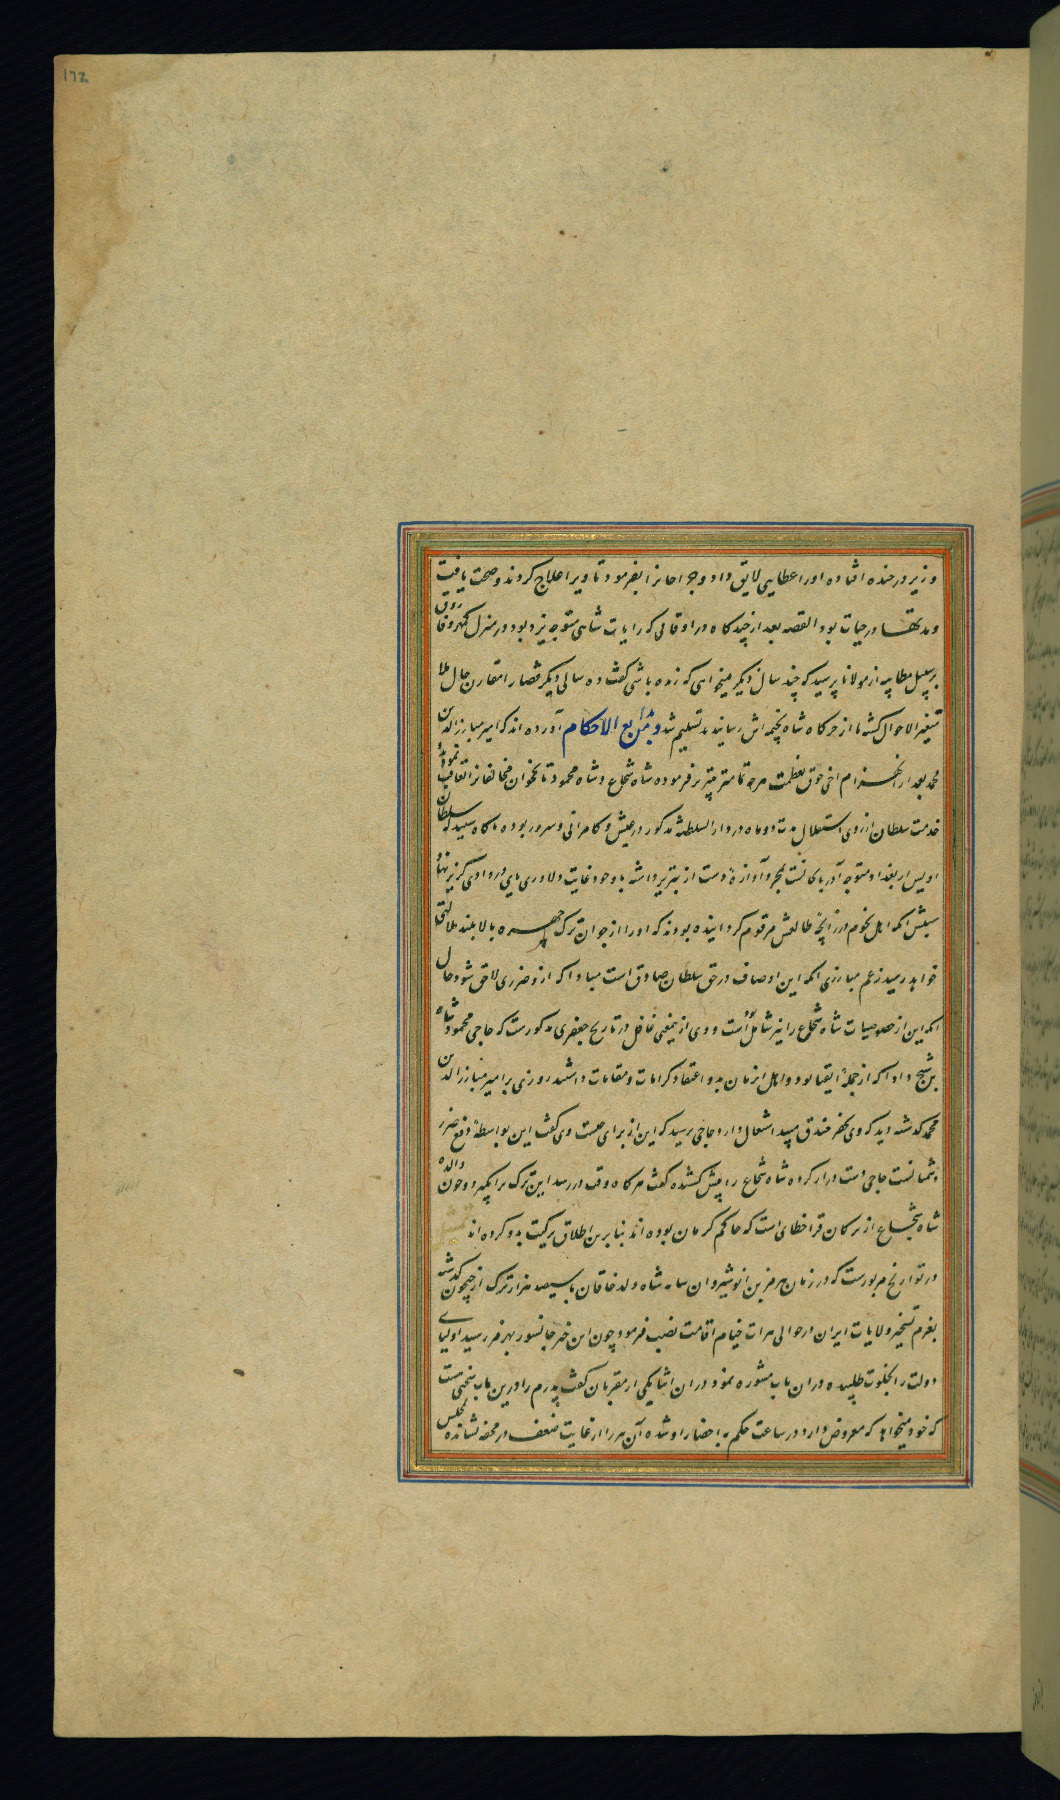 172
وزیر در خنده افتاده او را عطایی لایق داد و جراحانرا بفرمود تا ویرا علاج کردند و صحت یافت
و مدتها در حیات بود القصه بعد از چندگاه در اوقاتی که رایات شاهی متوجه یزد بود در منزل
بر سبیل مطایبه از مولانا پرسید که چند سال دیگر میخواهی که زنده باشی گفت ده سالی دیگر قضا را مقارن حال ملا
متغیر الاحوال گشته تا از خرگاه شاه بخیمه‌اش رسانیدند تسلیم شد و من بدایع الاحکام آورده‌اند که امیر مبارزالدین
محمد بعد از انهزام اخی جوق بعظمت هرچه تمامتر بتبریز فرموده شاه شجاع و شاه محمود تا نخجوان مخالفانرا تعاقب نموده
خدمت سلطان از روی استقلال مدت دو ماه در دارالسلطنه مذکور در عیش و کامرانی و سرور بوده ناگاه شنید که سلطان
اویس از بغداد متوجه آذربایجانست بمجرد آوازه دست از تبریز داشته با وجود غایت دلاوری پای در وادی گریز نهاد
سببش آنکه اهل نجوم در زایچه طالعش مرقوم گردانیده بودند که او را از جوان ترک چهره بالا بلند
خواهد رسید زعم مبارزی آنکه این اوصاف در حق سلطان صادق است مبادا که ازو ضرری لاحق شود و حال
آنکه این از خصوصیات شاه شجاع را نیز شامل است و وی ازینمعنی غافل در تاریخ جعفری مذکورست که حاجی محمود شاه
بن شیخ دادا که از جمله اتقیا بود و اهل انزمان بدو اعتقاد کرامات و مقامات داشتند روزی بر امیر مبارزالدین
محمد گذشته دید که وی بحفر خندق میبد اشتغال دارد حاجی پرسید که این از برای چیست وی گفت این بواسطه دفع ضرر
دشمنانست حاجی دست دراز کرده شاه شجاع را پیش کشیده گفت هرگاه وقت در رسد این ترک ترا بگیرد و چون والده
شاه شجاع از ترکان قراخطای است که حاکم کرمان بوده‌اند بنابرین اطلاق ترکیت بدو کرده‌اند
در تواریخ مزبورست که در زمان هرمز بن انوشیروان سابه شاه ولد خاقان با سیصد هزار ترک از جیحون گذشته
بعزم تسخیر ولایات ایران در حوالی هرات خیام اقامت نصب فرمود چون این خبر جانسوز بهرمز رسید اولیای
دولت را بخلوت طلبیده در ان باب مشوره نمود در ان اثنا یکی از مقربان گفت پدرم را درین باب سخنی هست
که خود میخواهد که معروض دارد در ساعت حکم به احضار او شده آن مرد را از غایت ضعف در محفه نشانده بمجلس